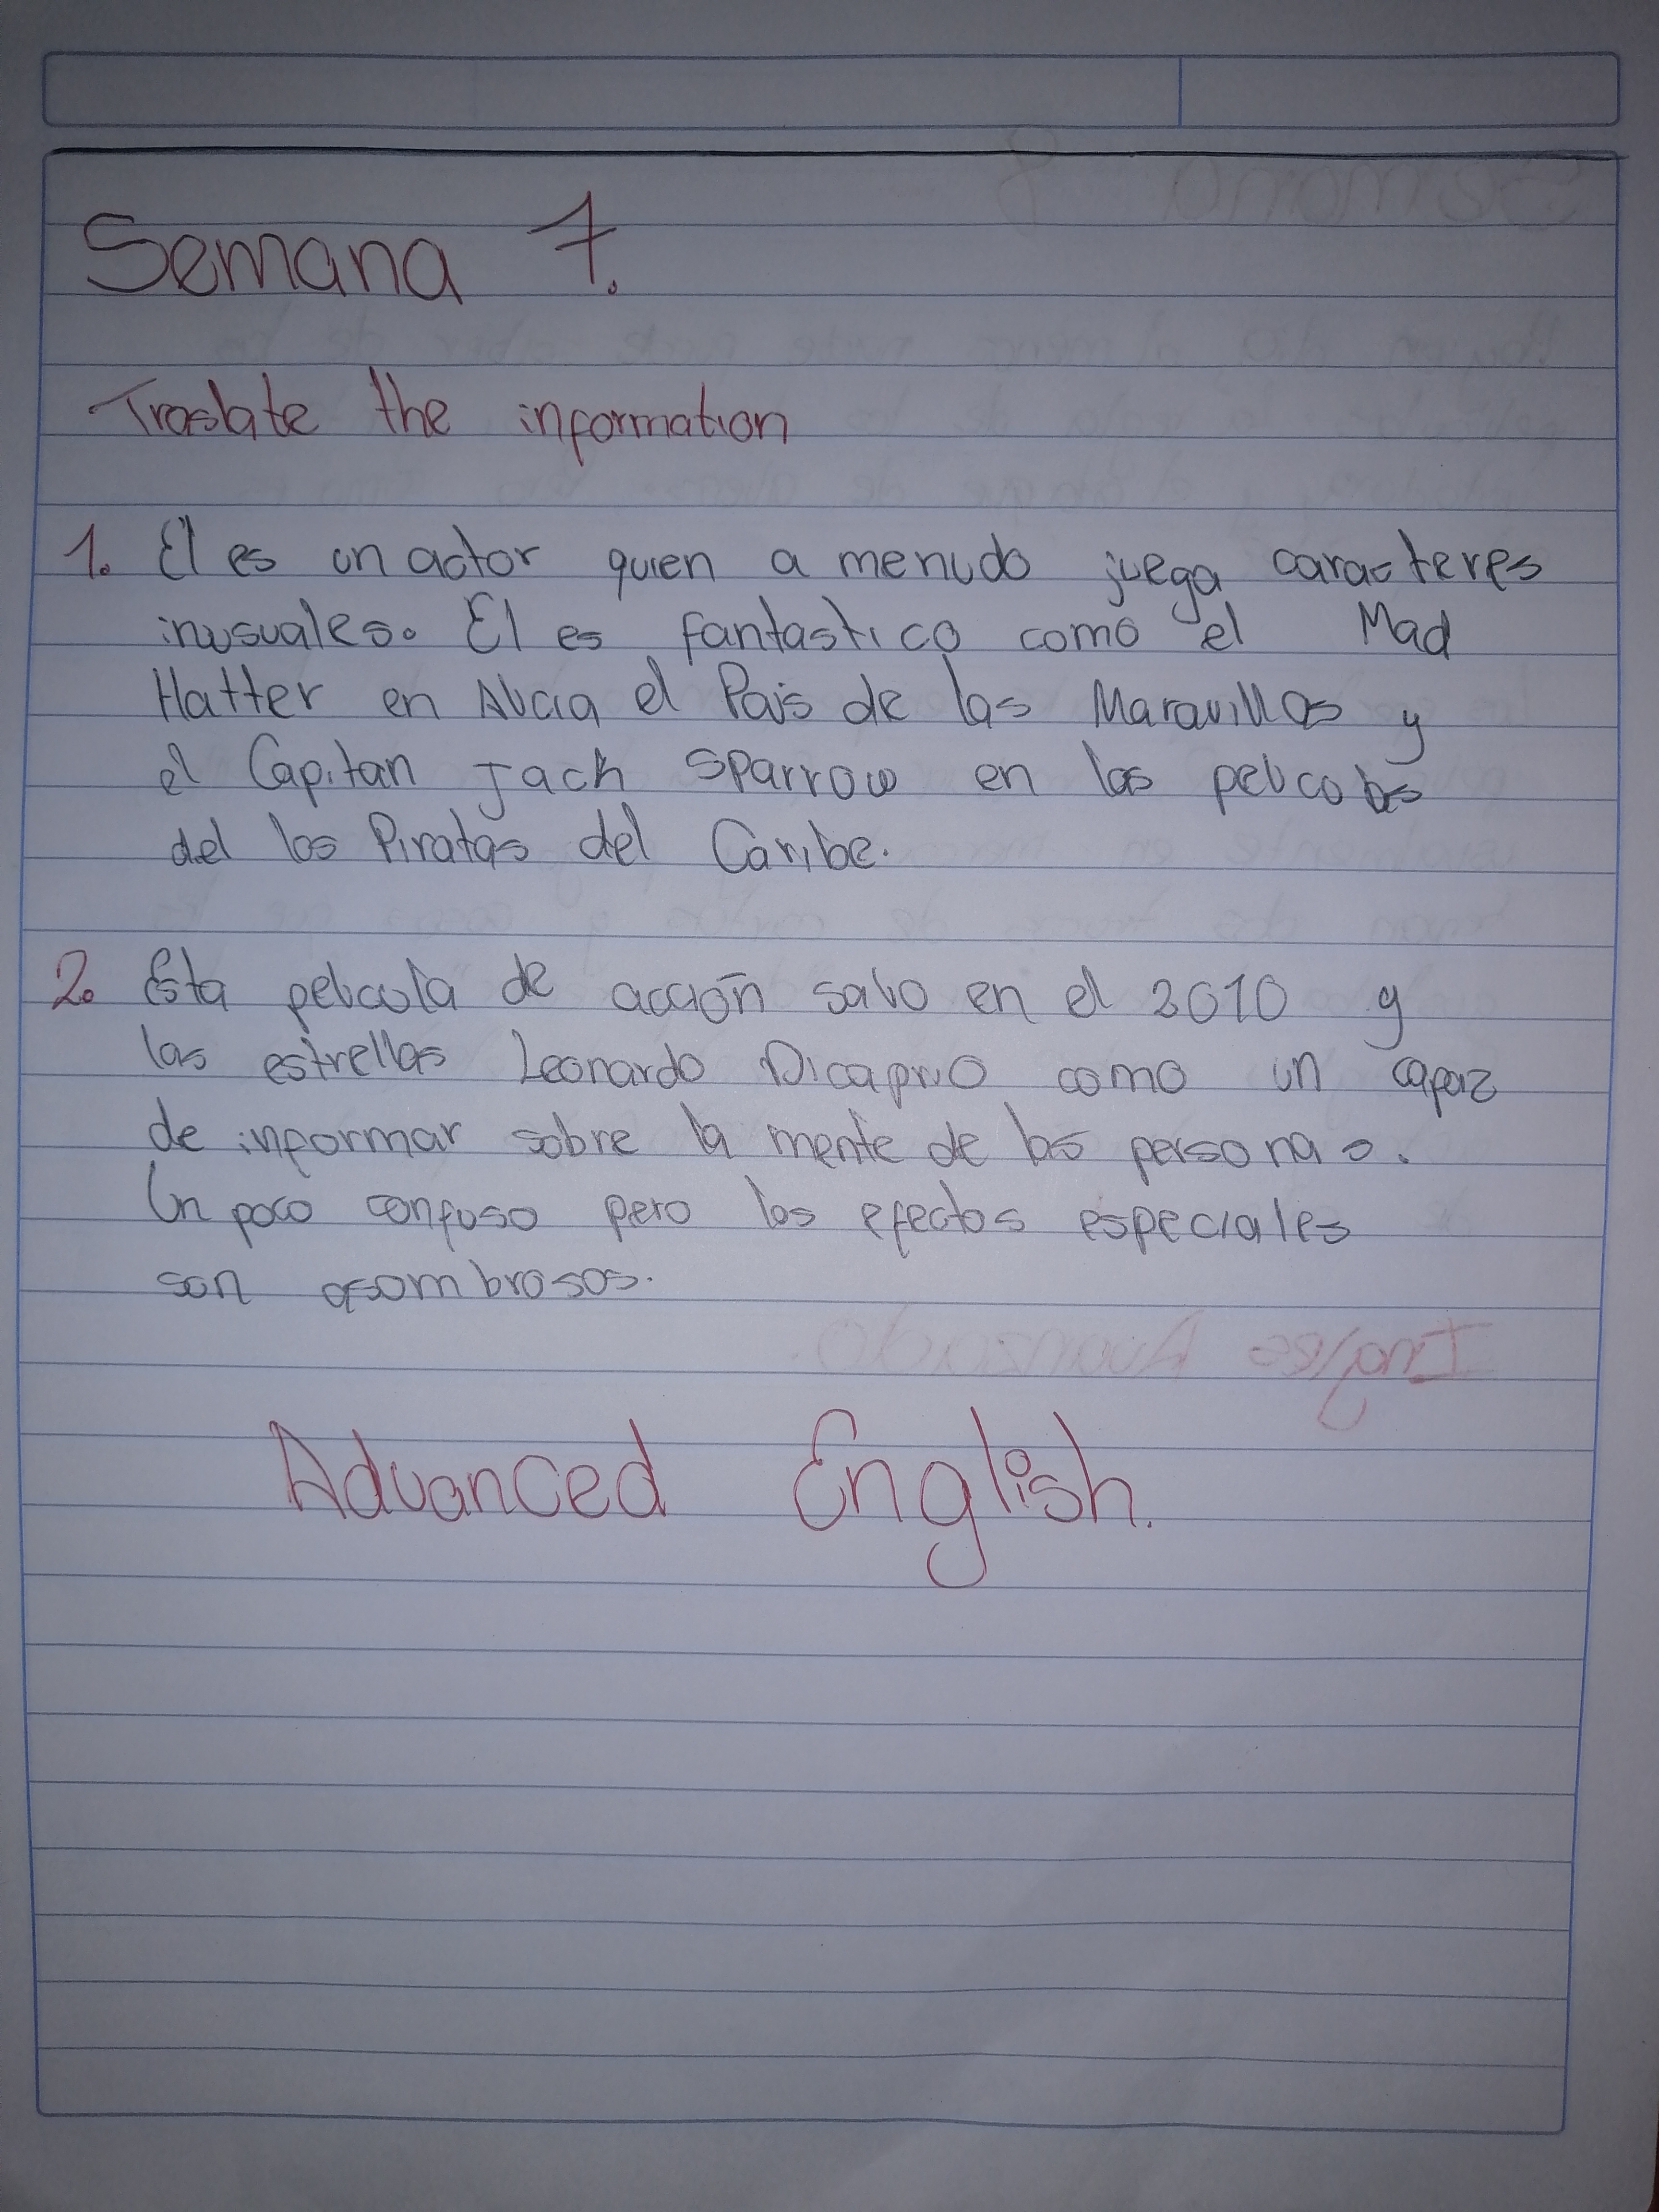 Semana 7.
Traslate the information
1. El es un actor quien a menudo juega caracteres
inusuales. El es fantastico como el Mad
Hatter en Alicia el Pais de las Maravillas y
el Capitan Jack Sparrow en las peliculas
del los Piratas del Caribe.
2. Esta pelicula de acción salio en el 2010 y
las estrellas Leonardo Dicaprio como un capaz
de informar sobre la mente de las personas.
Un poco confuso pero los efectos especiales
son asombrosos.
Advanced English.